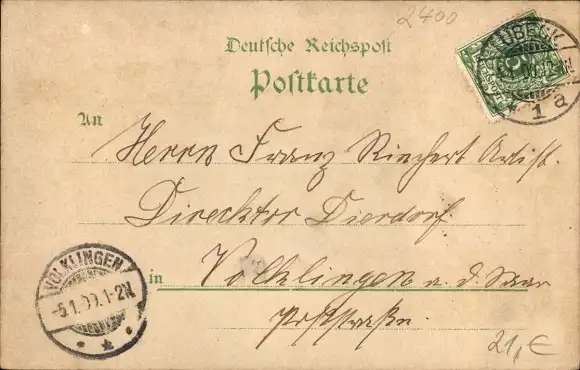 2400
LÜBECK
1 a
Deutsche Reichspost
Postkarte
An
Herrn Franz Riechert Artist.
Direcktor Dierdorf
in Völklingen a. d. Saar
Poststraße.
VÖLKLINGEN
-5.1.00.1-2N.
21,€